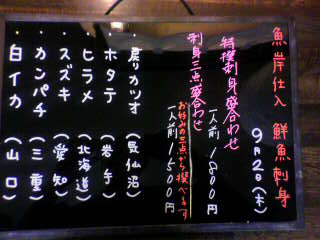 魚岸仕入 鮮魚刺身
9月2日(木)
特撰刺身盛合わせ
一人前 1800円
刺身三点盛合わせ
お好みの三点が選べます
一人前 1500円
戻りカツオ(気仙沼)
ホタテ(岩手)
ヒラメ(北海道)
スズキ(愛知)
カンパチ(三重)
白イカ(山口)